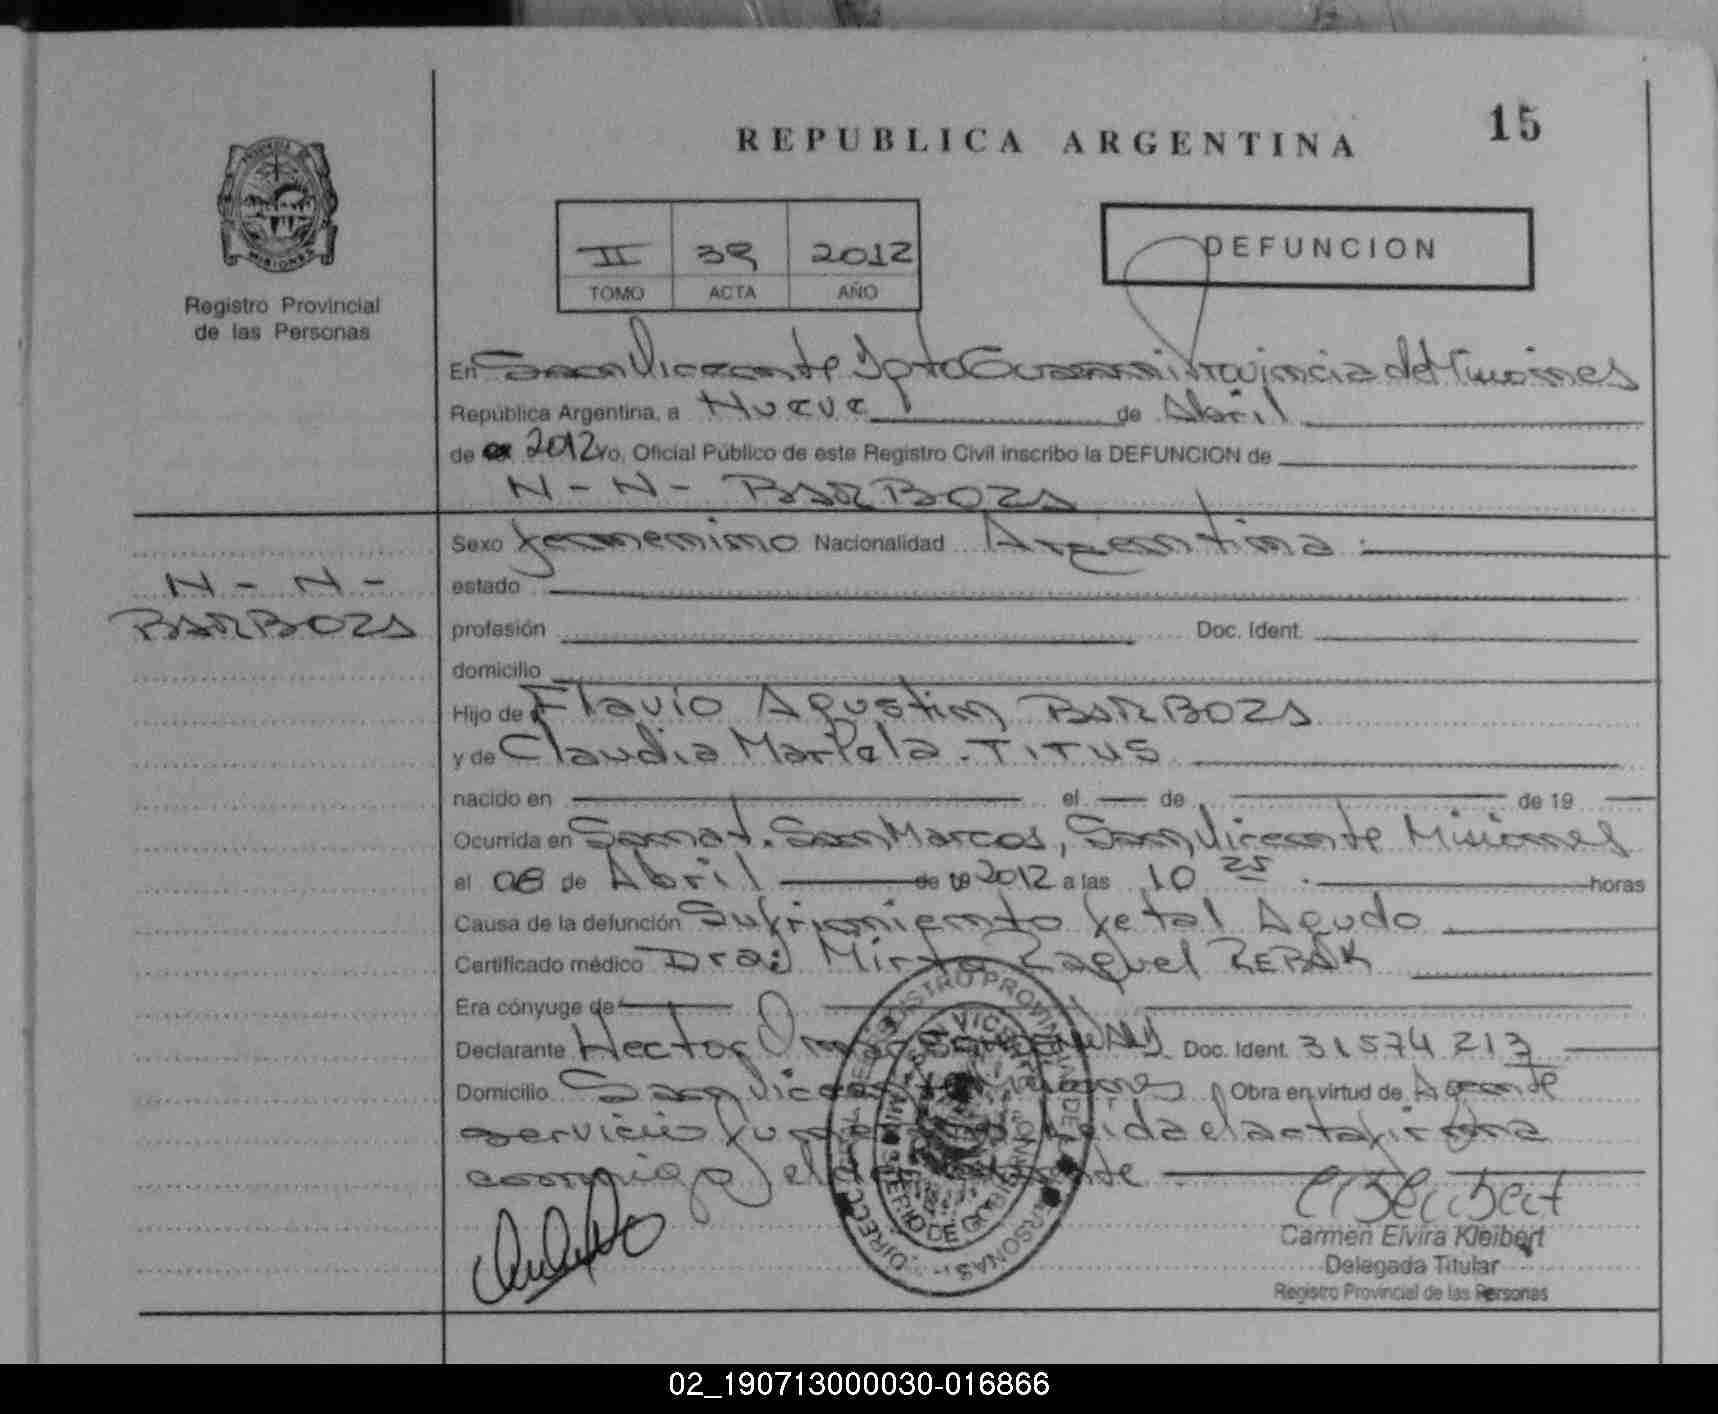 15
REPUBLICA ARGENTINA
PROVINCIA DE
MISIONES
Registro Provincial
de las Personas
II 39 2012
TOMO ACTA AÑO
DEFUNCION
En San Vicente Dpto Guarani Provincia de Misiones
República Argentina, a Nueve de Abril
de 2012 Yo, Oficial Público de este Registro Civil inscribo la DEFUNCION de
N-N- BARBOZA
N-N-
BARBOZA
Sexo femenino Nacionalidad Argentina
estado
profesión Doc. Ident.
domicilio
Hijo de Flavio Agustin BARBOZA
y de Claudia Mariela TITUS
nacido en el de de 19
Ocurrida en Sanat. San Marcos, San Vicente Misiones
el 08 de Abril de 19 2012 a las 10 25 horas
Causa de la defunción Sufrimiento fetal Agudo
Certificado médico Dra; Mirta Raquel REBAK
Era cónyuge de
Declarante Hector Omar Doc. Ident. 31574213
Domicilio San Vicente Misiones Obra en virtud de Agente
servicio leida el acta firma
conmigo el declarante
Carmen Elvira Kleibert
Delegada Titular
Registro Provincial de las Personas
02_190713000030-016866